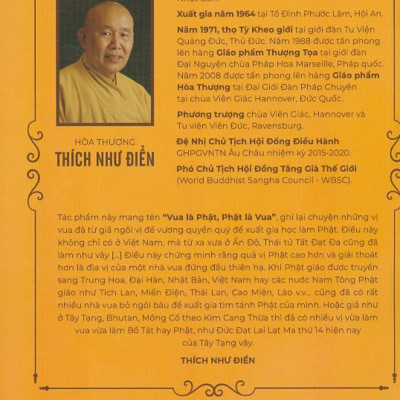 Xuất gia năm 1964 tại Tổ Đình Phước Lâm, Hội An.
Năm 1971, thọ Tỳ Kheo giới tại giới đàn Tu Viện
Quảng Đức, Thủ Đức. Năm 1988 được tấn phong
lên hàng Giáo phẩm Thượng Tọa tại giới đàn
Đại Nguyện chùa Pháp Hoa Marseille, Pháp quốc.
Năm 2008 được tấn phong lên hàng Giáo phẩm
Hòa Thượng tại Đại Giới Đàn Pháp Chuyên
tại chùa Viên Giác Hannover, Đức Quốc.
Phương trượng chùa Viên Giác, Hannover và
Tu viện Viên Đức, Ravensburg.
Đệ Nhị Chủ Tịch Hội Đồng Điều Hành
GHPGVNTN Âu Châu nhiệm kỳ 2015-2020.
Phó Chủ Tịch Hội Đồng Tăng Già Thế Giới
(World Buddhist Sangha Council - WBSC).
HÒA THƯỢNG
THÍCH NHƯ ĐIỂN
Tác phẩm này mang tên “Vua là Phật, Phật là Vua”, ghi lại chuyện những vị
vua đã từ giã ngôi vị đế vương quyền quý để xuất gia học làm Phật. Điều này
không chỉ có ở Việt Nam, mà từ xa xưa ở Ấn Độ, Thái tử Tất Đạt Đa cũng đã
làm như vậy [...] Điều này chứng minh rằng quả vị Phật cao hơn và giải thoát
hơn là địa vị của một nhà vua đứng đầu thiên hạ. Khi Phật giáo được truyền
sang Trung Hoa, Đại Hàn, Nhật Bản, Việt Nam hay các nước Nam Tông Phật
giáo như Tích Lan, Miến Điện, Thái Lan, Cao Miên, Lào v.v... cũng đã có rất
nhiều nhà vua bỏ ngôi báu để xuất gia tìm tánh Phật của mình. Hoặc giả như
ở Tây Tạng, Bhutan, Mông Cổ theo Kim Cang Thừa thì đã có nhiều vị vừa làm
vua vừa làm Bồ Tát hay Phật, như Đức Đạt Lai Lạt Ma thứ 14 hiện nay
của Tây Tạng vậy.
THÍCH NHƯ ĐIỂN